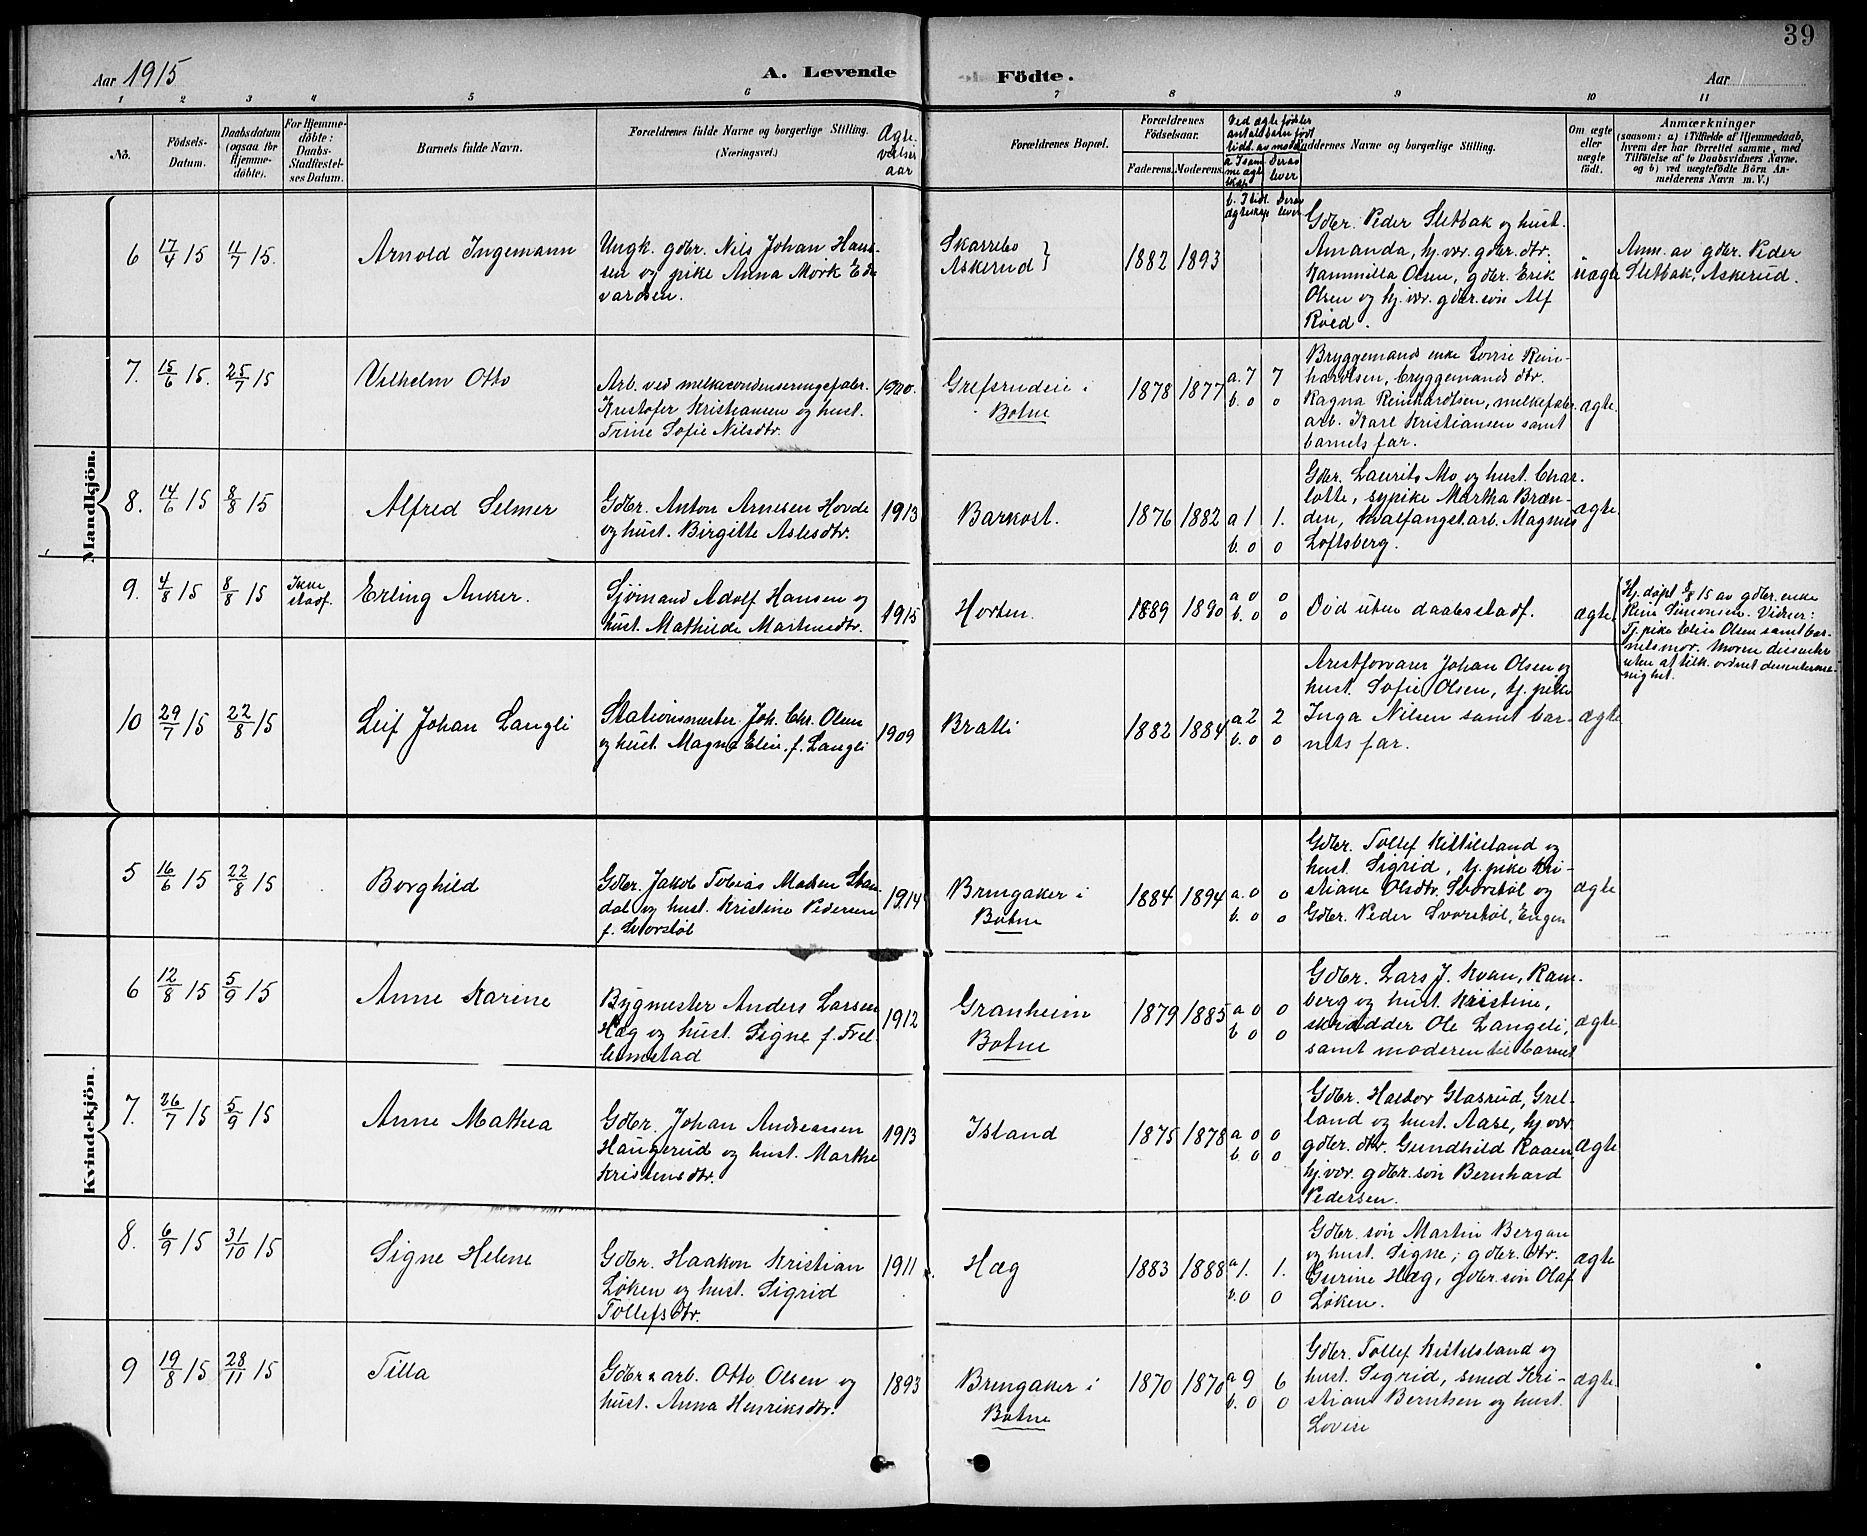 39
Aar 1915
A. Levende
Födte.
Aar
1 2 3 4 5 6 7 8 9 10 11
No.
Födsels-
Datum.
Daabsdatum
(ogsaa for
Hjemme-
döbte).
For Hjemme-
döbte:
Daabs-
Stadfæstel-
ses Datum.
Barnets fulde Navn.
Forældrenes fulde Navne og borgerlige Stilling.
(Næringsvei.)
Ægte-
vielses
aar
Forældrenes Bopæl.
Forældrenes
Födselsaar.
Faderens. Moderens.
Ved ægte fødsler
antal barn født
tidl. av mor
a. I sam
me ægt
skap
Derav
lever
b. I tidl.
ægtesk.
Derav
lever
Faddernes Navne og borgerlige Stilling.
Om ægte
eller
uægte
födt.
Anmærkninger
(saasom: a) i Tilfælde af Hjemmedaab,
hvem der har forrettet samme, med
Tilföielse af to Daabsvidners Navne.
og b) ved uægtefödte Börn An-
melderens Navn m. V.)
Mandkjön.
6 17/4 15 4/7 15.
Arnold Ingemann
Ungk. gdbr. Nils Johan Han-
sen og pike Anna Mørk Ed-
vardsen.
Skarrebo
Askerud
1882 1893
Gdbr. Peder Sletbak og hust.
Amanda, hj. vær. gdbr. dtr.
Kammilla Olsen, gdbr. Erik
Olsen og hj. vær. gdbr. søn Alf
Røed.
uægte
Anm. av gdbr. Peder
Sletbak, Askerud.
7. 15/6 15. 25/7 15
Vilhelm Otto
Arb. ved melkecondenseringsfabr.
Kristofer Kristiansen og hust.
Trine Sofie Nilsdtr.
1900.
Grefsrudeie i
Botne
1878 1877
a. 7 7
b. 0 0
Bryggemands enke Lovise Rein-
hardtsen, bryggemands dtr.
Ragna Reinhardtsen, melkefabr.
arb. Karl Kristiansen samt
barnets far.
ægte.
8. 14/6 15 8/8 15
Alfred Selmer
Gdbr. Anton Arnesen Hovde
og hust. Birgitte Aslesdtr.
1913
Barkost.
1876 1882
a 1 1.
b. 0 0
Gdbr. Laurits Mo og hust. Char-
lotte, sypike Martha Bræn-
den, hvalfangstarb. Magnus
Loftsberg.
ægte
9. 4/8 15 8/8 15
Ikke
stadf.
Erling Anker.
Sjømand Adolf Hansen og
hust. Mathilde Martinsdtr.
1915
Horten.
1889 1890
a 0 0
b. 0 0
Død uten daabsstadf.
ægte
Hj. døpt 8/8 15 av gdbr. enke
Simonsen. Vidner:
Tj. pike Elise Olsen samt bar-
nets mor. Moren dissenter
uten at tilh. ordnet dissenterme-
nighet.
10 29/7 15 22/8 15
Leif Johan Langli
Stationsmester Joh. Chr. Olsen
og hust. Magna Elise f. Langli
1909
Bratli
1882 1884
a 2 2
b. 0 0
Arestforvarer Johan Olsen og
hust. Sofie Olsen, tj. pike
Inga Nilsen samt bar-
nets far.
ægte
Kvindekjön.
5 16/6 15 22/8 15
Borghild
Gdbr. Jakob Tobias Madsen
dal og hust. Kristine Pedersen
f. Svorstøl
1914
Bringaker i
Botne
1884 1894
a. 0 0
b. 0 0
Gdbr. Tollef Kittilsland og
hust. Sigrid, tj. pike Kri-
stiane Olsdtr. Svorstøl og
Gdbr. Peder Svorstøl, Engen
ægte
6 12/8 15 5/9 15
Anne Karine
Bygmester Anders Larsen
Hæg og hust. Signe f. Trel-
lumstad
1912
Granheim
Botne
1879 1885
a 0 0
b 0 0
Gdbr. Lars J. Kvan, Ram-
berg og hust. Kristine,
skrædder Ole Langeli,
samt moderen til barnet
ægte
7. 26/7 15 5/9 15
Anne Mathea
Gdbr. Johan Andreassen
Haugerud og hust. Marthe
Kristensdtr.
1913
Island
1875 1878
a 0 0
b. 0 0
Gdbr. Halvor Glasrud, Grel-
land og hust. Aase, hj. vær.
gdbr. dtr. Gundhild Raaen
hj. vær. gdbr. søn Bernhard
Pedersen.
ægte
8. 6/9 15 31/10 15
Signe Helene
Gdbr. Haakon Kristian
Løken og hust. Sigrid
Tollefsdtr.
1911
Hæg
1883 1888
a 1. 1.
b. 0 0
Gdbr. søn Martin Bergan
og hust. Signe, gdbr. dtr.
Gurine Hæg, gdbr. søn Olaf
Løken.
ægte
9 19/8 15 28/11 15
Tilla
Gdbr & arb. Otto Olsen og
hust. Anna Henriksdtr.
1893
Bringaker i
Botne
1870 1870
a 9 6
b. 0 0
Gdbr. Tollef Kittilsland og
hust. Sigrid, smed Kri-
stian Berntsen og hust.
Lovise
ægte.